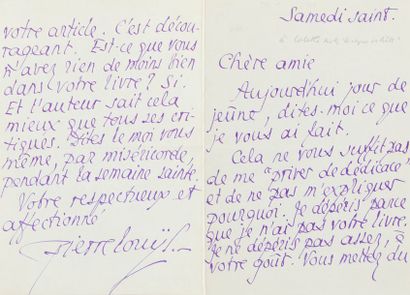 Samedi saint.
Chère amie
Aujourd'hui jour de
jeûne, dites-moi ce que
je vous ai fait.
Cela ne vous suffit pas
de me "priver de dédicace"
et de ne pas m'expliquer
pourquoi. Je dépéris parce
que je n'ai pas votre livre.
Je ne dépéris pas assez, à
votre goût. Vous mettez du
votre article. C'est décou-
rageant. Est-ce que vous
n'avez rien de moins bien
dans votre livre? Si.
Et l'auteur sait cela
mieux que tous ses cri-
tiques. Dites le moi vous
même, par miséricorde,
pendant la semaine sainte.
Votre respectueux et
affectionné
Pierre Louÿs